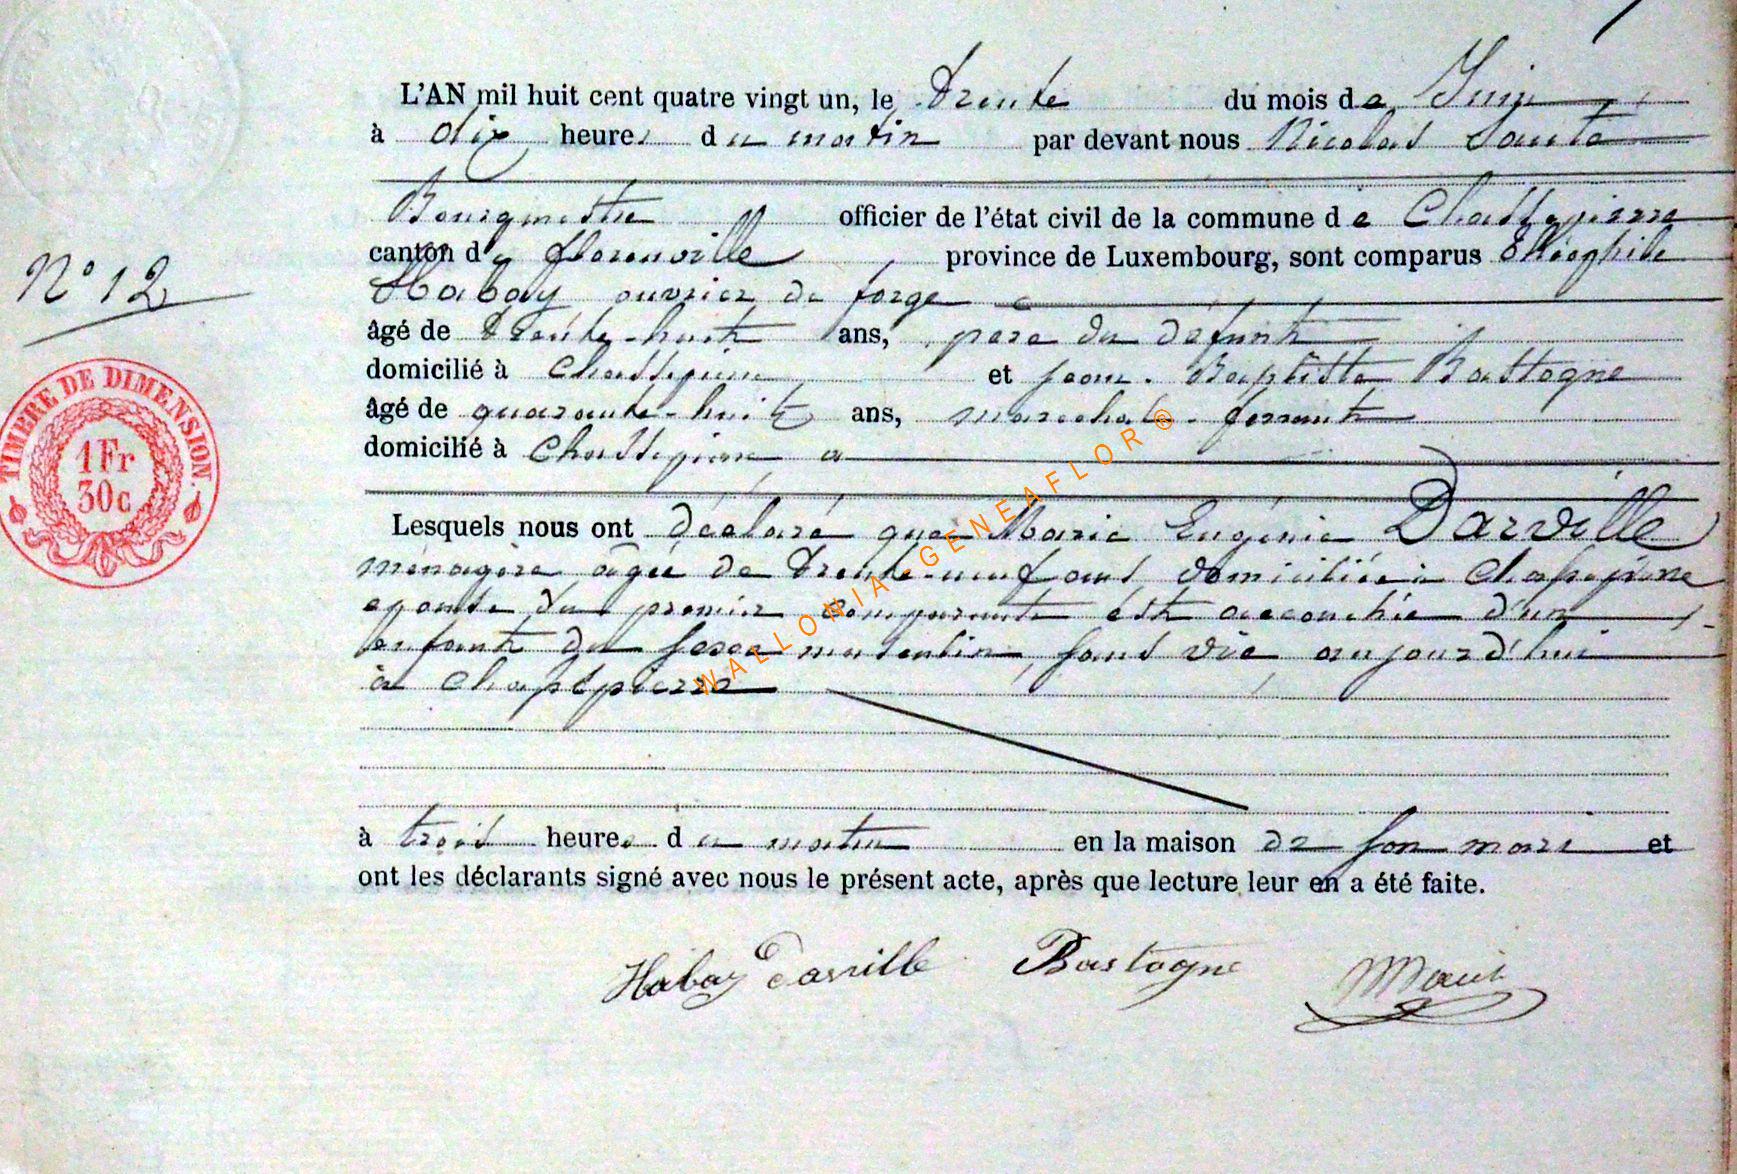 L'AN mil huit cent quatre vingt un, le trente du mois de Juin
à dix heures du matin par devant nous Nicolas
Bourgmestre officier de l'état civil de la commune de Chassepierre
canton de florenville province de Luxembourg, sont comparus Théophile
Habay ouvrier de forge
âgé de trente-huit ans, père du défunt
domicilié à Chassepierre et jean-Baptiste Bastogne
N° 12
âgé de quarante-huit ans, marechal-ferrant
domicilié à Chassepierre
TIMBRE DE DIMENSION.
1Fr
30c
Lesquels nous ont déclaré que Marie Eugénie Darville
ménagère âgée de trente-neuf ans domiciliée à Chassepierre
epouse du premier comparant est accouchée d'un
enfant du sexe masculin, sans vie aujourd'hui
à Chassepierre
à trois heures du matin en la maison de son mari et
ont les déclarants signé avec nous le présent acte, après que lecture leur en a été faite.
Habay Darville Bastogne
WALLONIA-GENEAFLOR ®